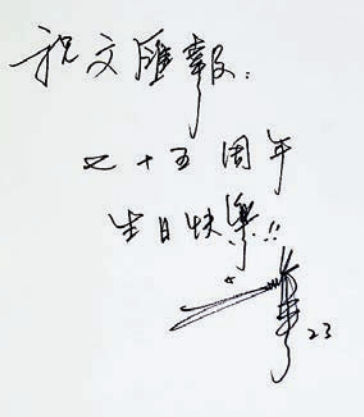 祝文匯報：
七十五周年
生日快樂!!
23